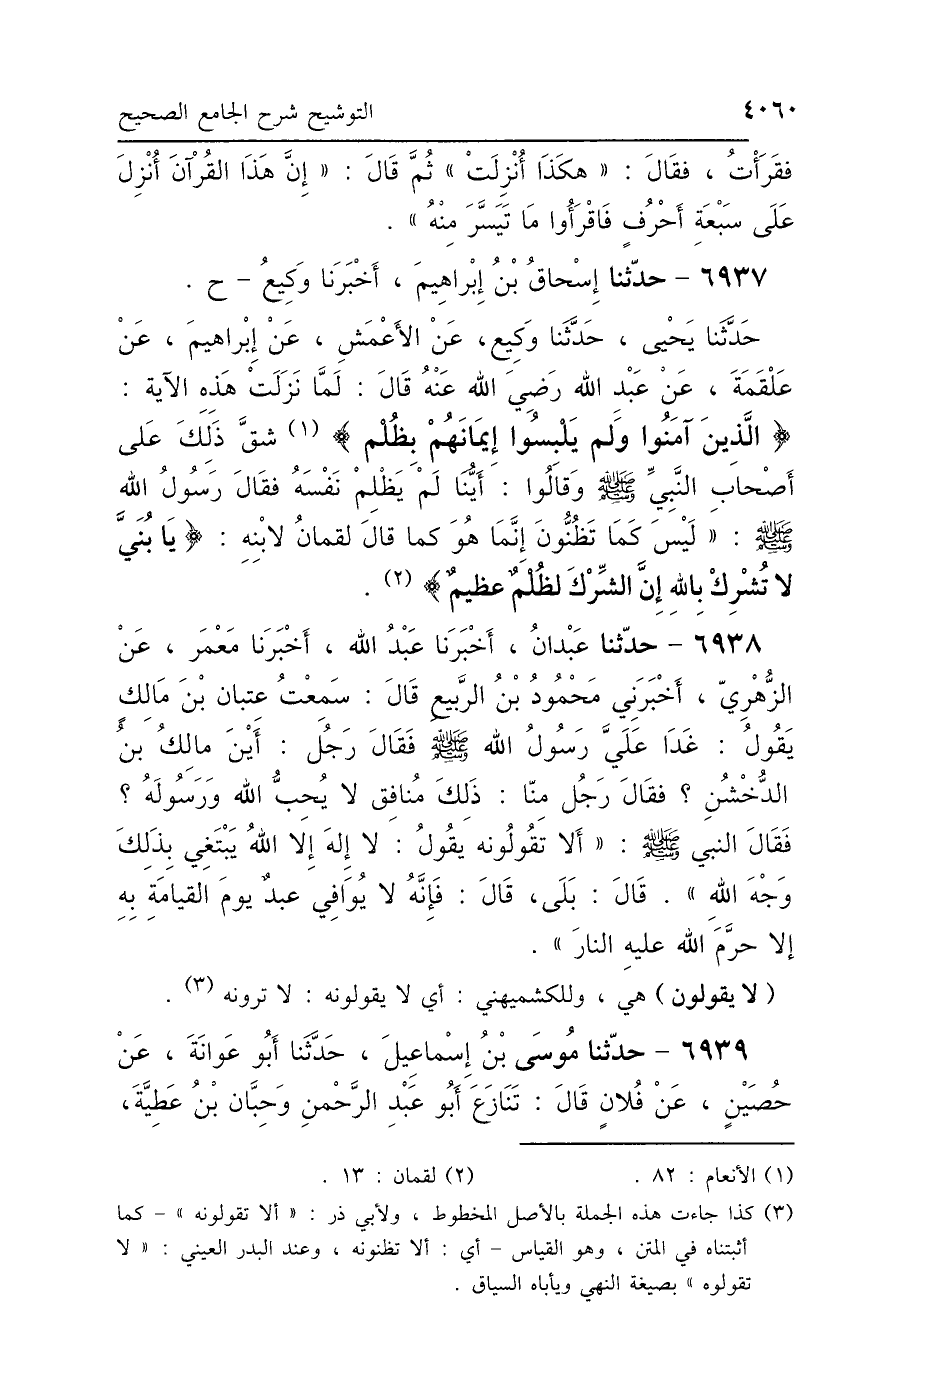 ٤٠٦٠ التوشيح شرح الجامع الصحيح
فقَرَأْتُ ، فقَالَ : « هكَذَا أُنْزِلَتْ » ثُمَّ قَالَ : « إِنَّ هَذَا القُرْآنَ أُنْزِلَ
عَلَى سَبْعَةِ أَحْرُفٍ فَاقْرَأُوا مَا تَيَسَّرَ مِنْهُ » .
٦٩٣٧ – حدّثنا إِسْحاقُ بْنُ إِبْراهِيمَ ، أَخْبَرَنَا وَكِيعُ – ح .
حَدَّثَنا يَحْيى ، حَدَّثَنا وَكِيع، عَنْ الأَعْمَشِ ، عَنْ إِبْراهيمَ ، عَنْ
عَلْقَمَةَ ، عَنْ عَبْدِ الله رَضِيَ الله عَنْهُ قَالَ : لَمَّا نَزَلَتْ هَذِهِ الآية :
﴿ الَّذِينَ آمَنُوا وَلَم يَلْبِسُوا إِيمَانَهُمْ بِظُلْم ﴾ (١) شقَّ ذَلِكَ عَلى
أَصْحابِ النَّبِيِّ ﷺ وَقالُوا : أَيُّنَا لَمْ يَظْلِمْ نَفْسَهُ فقَالَ رَسُولُ الله
ﷺ : « لَيْسَ كَمَا تَظُنُّونَ إِنَّمَا هُوَ كما قالَ لقمانُ لابْنِهِ : ﴿ يَا بُنَيَّ
لا تُشْرِكْ بِالله إِنَّ الشِّرْكَ لظُلْمٌ عظيمٌ﴾ (٢) .
٦٩٣٨ – حدّثنا عَبْدانُ ، أَخبَرَنا عَبْدُ الله ، أَخْبَرَنَا مَعْمَر ، عَنْ
الزُّهْرِيّ ، أَخْبَرَنِي مَحْمُودُ بْنُ الرَّبِيعِ قَالَ : سَمِعْتُ عتبان بْنَ مَالِكٍ
يَقُولُ : غَدَا عَلَيَّ رَسُولُ الله ﷺ فَقَالَ رَجُل : أَيْنَ مالِكُ بنُ
الدُّخْشُنِ ؟ فقَالَ رَجُل مِنّا : ذَلِكَ مُنافِق لا يُحِبُّ الله وَرَسُولَهُ ؟
فَقَالَ النبي ﷺ : « أَلا تقُولُونه يقُولُ : لا إِلهَ إلا اللهُ يَبْتَغِي بِذَلِكَ
وَجْهَ اللهِ » . قَالَ : بَلَى، قَالَ : فَإِنَّهُ لا يُوَافِي عبدٌ يومَ القيامَةِ بِهِ
إلا حرَّمَ الله عليهِ النارَ » .
( لا يقولون ) هي ، وللكشميهني : أي لا يقولونه : لا ترونه (٣) .
٦٩٣٩ – حدّثنا مُوسَى بْنُ إِسْماعِيلَ ، حَدَّثَنا أَبُو عَوانَةَ ، عَنْ
حُصَيْنٍ ، عَنْ فُلانٍ قَالَ : تَنَازَعَ أَبُو عَبْدِ الرَّحْمنِ وَحِبَّان بْنُ عَطِيَّةَ،
(١) الأنعام : ٨٢ . (٢) لقمان : ١٣ .
(٣) كذا جاءت هذه الجملة بالأصل المخطوط ، ولأبي ذر : « ألا تقولونه » – كما
أثبتناه في المتن ، وهو القياس – أي : ألا تظنونه ، وعند البدر العيني : « لا
تقولوه » بصيغة النهي ويأباه السياق .